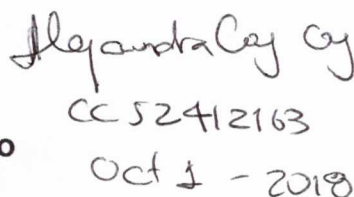 Alejandra Coy Coy
CC 52412163
o Oct 1 - 2018